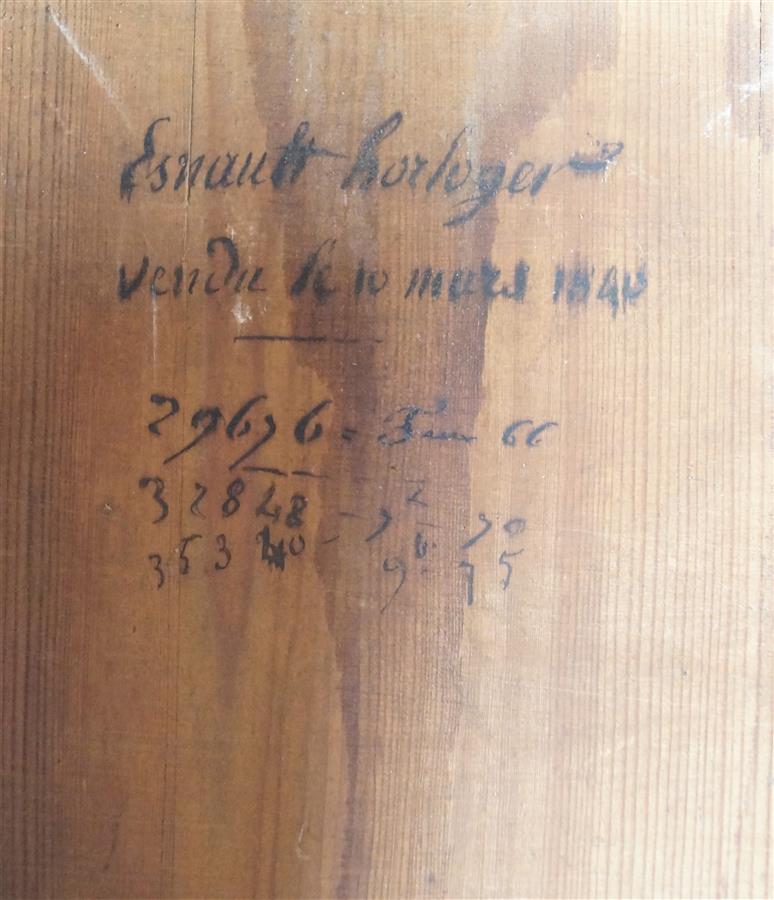 Esnault horloger
vendu le 10 mars 1840
29676 = 66
32848 - 7² 70
35340 - 9ᵇʳ 75